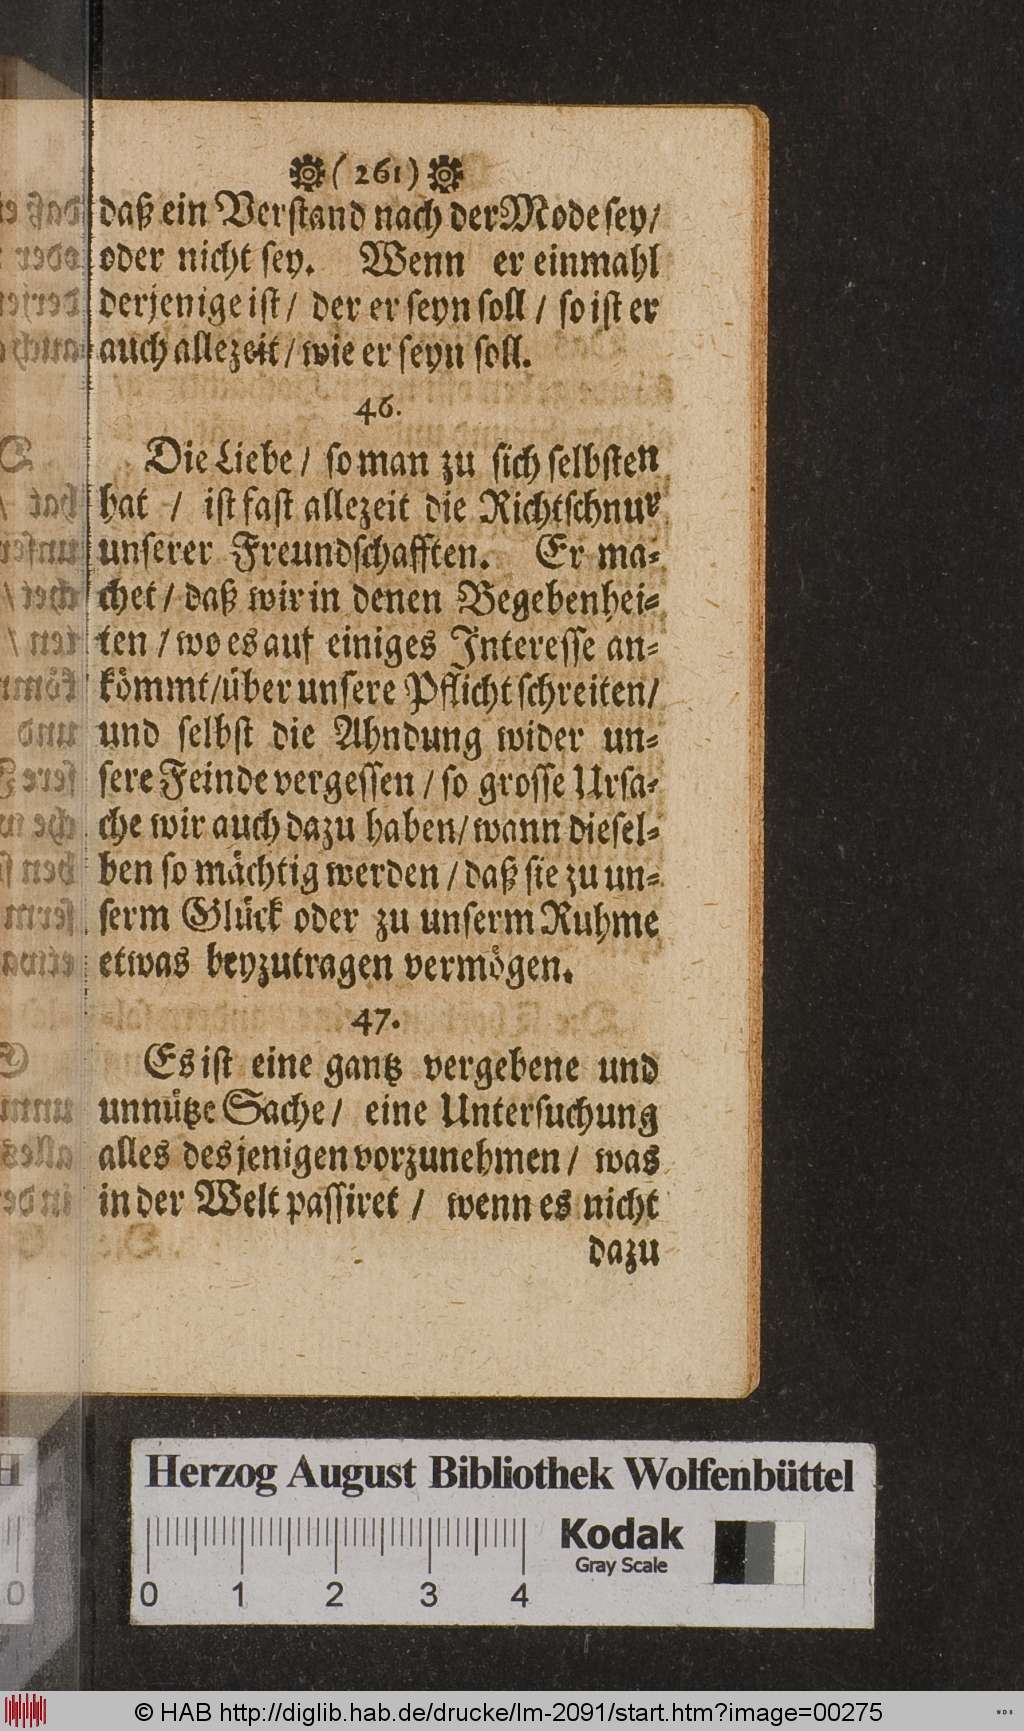 (261)
daß ein Verstand nach der Mode sey/
oder nicht sey. Wenn er einmahl
derjenige ist / der er seyn soll / so ist er
auch allezeit / wie er seyn soll.
46.
Die Liebe / so man zu sich selbsten
hat / ist fast allezeit die Richtschnur
unserer Freundschafften. Er ma-
chet / daß wir in denen Begebenhei-
ten / wo es auf einiges Interesse an-
kömmt/über unsere Pflicht schreiten/
und selbst die Ahndung wider un-
sere Feinde vergessen / so grosse Ursa-
che wir auch dazu haben/ wann diesel-
ben so mächtig werden / daß sie zu un-
serm Glück oder zu unserm Ruhme
etwas beyzutragen vermögen.
47.
Es ist eine gantz vergebene und
unnütze Sache / eine Untersuchung
alles desjenigen vorzunehmen / was
in der Welt passiret / wenn es nicht
dazu
Herzog August Bibliothek Wolfenbüttel
Kodak
Gray Scale
0 1 2 3 4
© HAB http://diglib.hab.de/drucke/lm-2091/start.htm?image=00275